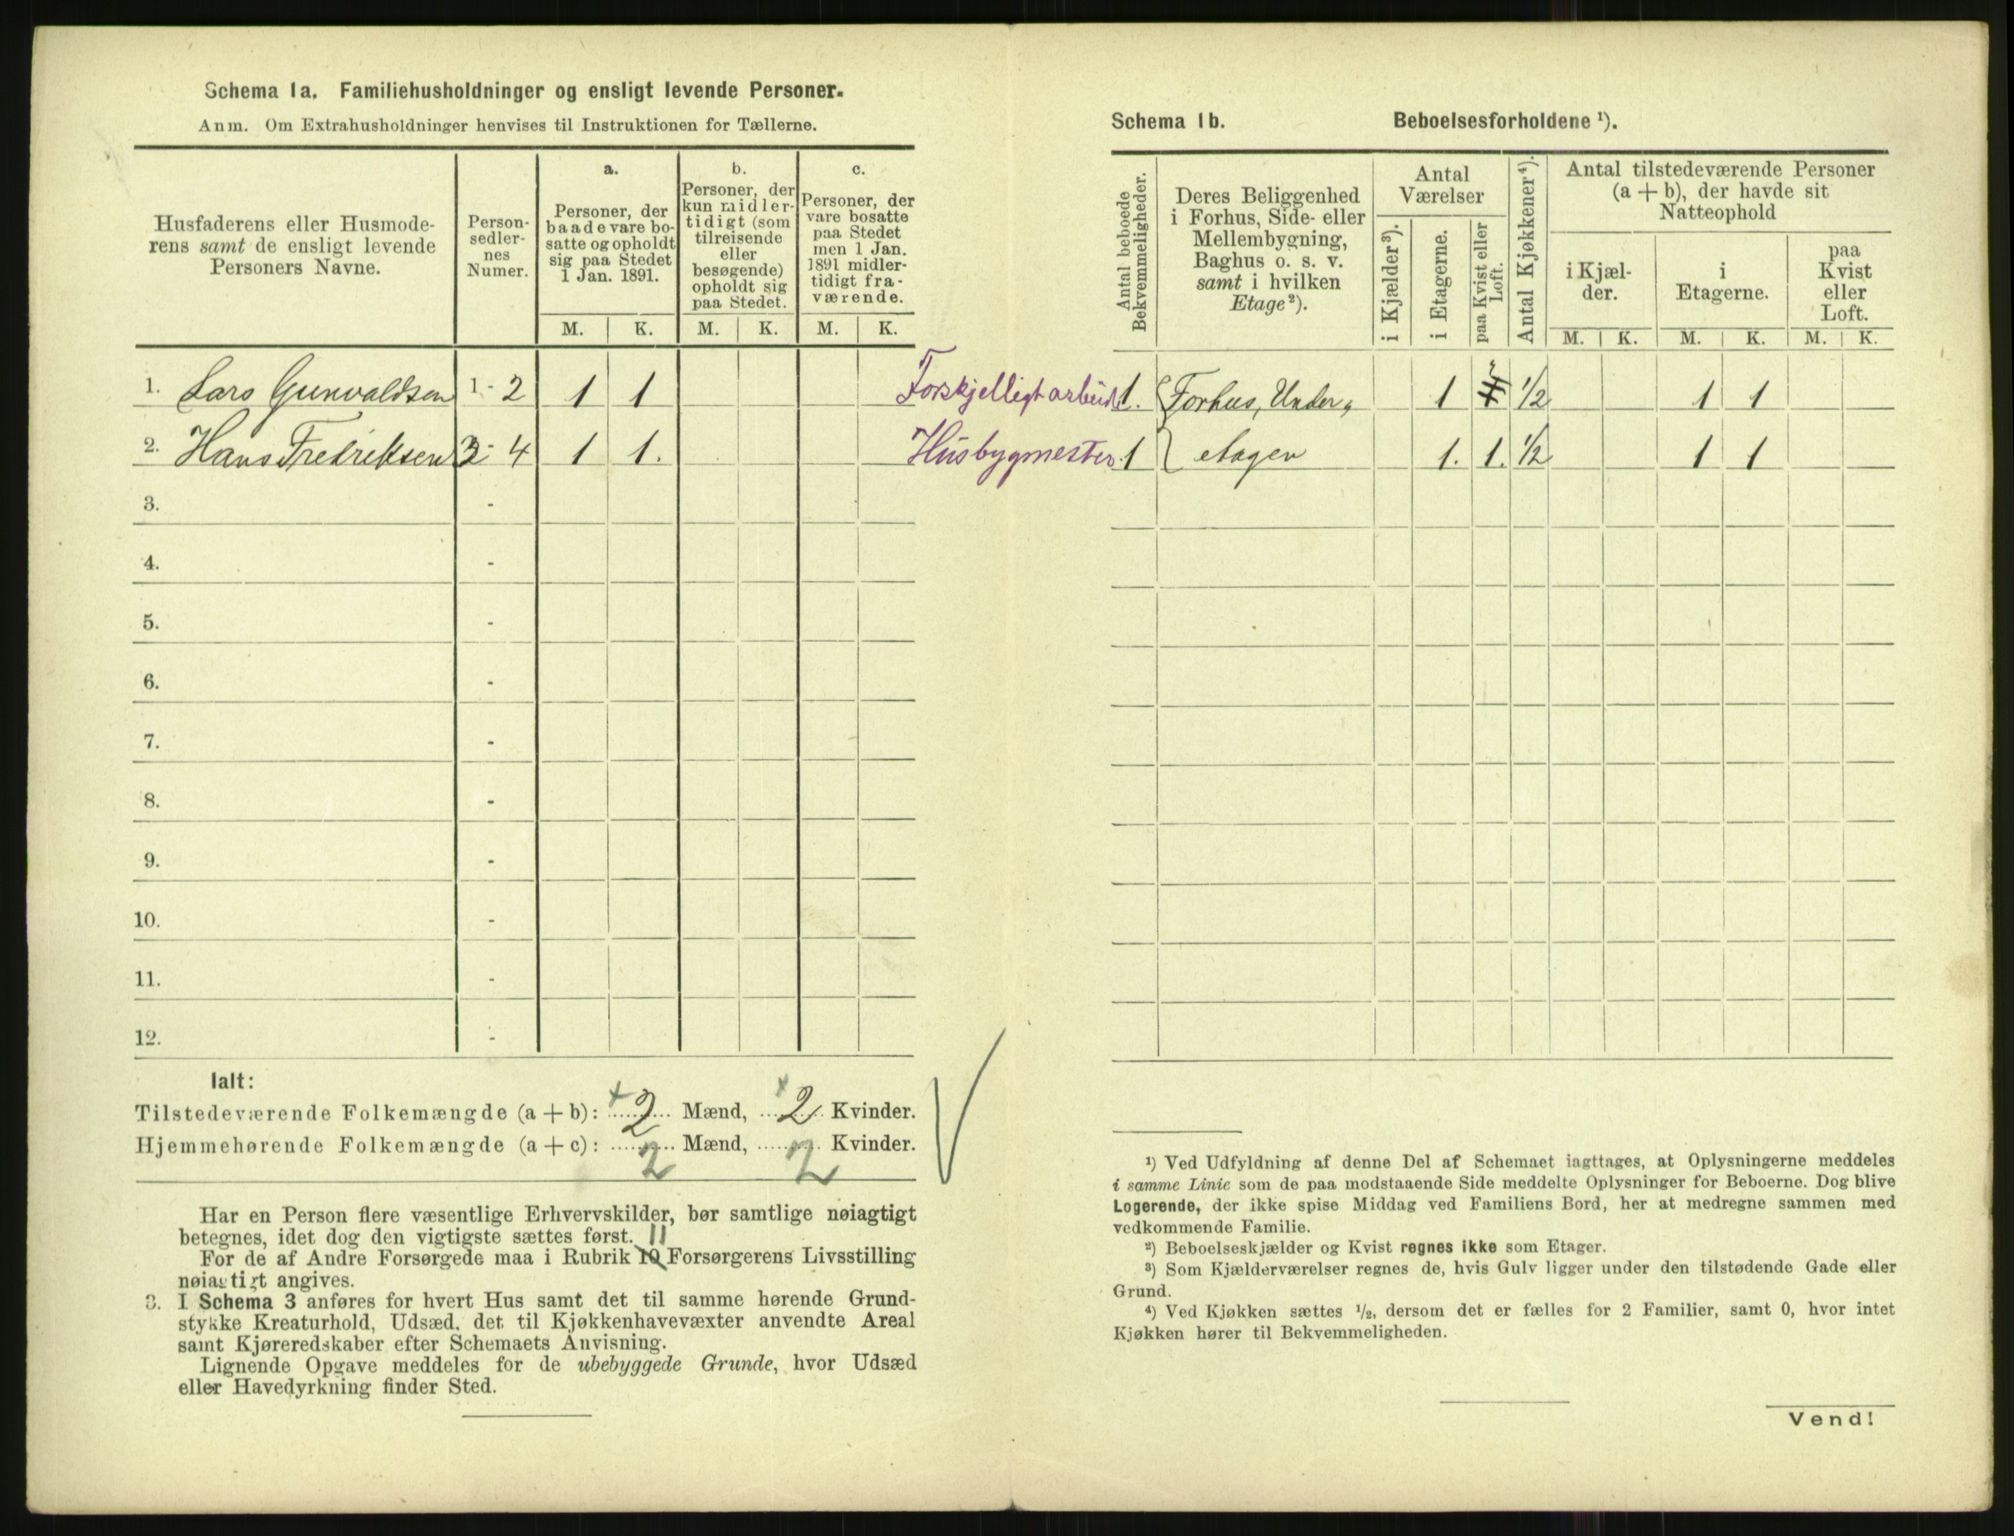 Schema 1a. Familiehusholdninger og ensligt levende Personer.
Anm. Om Extrahusholdninger henvises til Instruktionen for Tællerne.
Husfaderens eller Husmode-
rens samt de ensligt levende
Personers Navne.
Person-
sedler-
nes
Numer.
a.
Personer, der
baade vare bo-
satte og opholdt
sig paa Stedet
1 Jan. 1891.
b.
Personer, der
kun midler-
tidigt (som
tilreisende
eller
besøgende)
opholdt sig
paa Stedet.
c.
Personer, der
vare bosatte
paa Stedet
men 1 Jan.
1891 midler-
tidigt fra-
værende.
M. K. M. K. M. K.
1. Lars Gunvaldsen 1 - 2 1 1
2. Hans Fredriksen 3 - 4 1 1.
3. -
4. -
5. -
6. -
7. -
8. -
9. -
10. -
11. -
12. -
Ialt:
Tilstedeværende Folkemængde (a + b): 2 Mænd, 2 Kvinder.
Hjemmehørende Folkemængde (a + c): 2 Mænd, 2 Kvinder.
Har en Person flere væsentlige Erhvervskilder, bør samtlige nøiagtigt
betegnes, idet dog den vigtigste sættes først. 11
For de af Andre Forsørgede maa i Rubrik 10 Forsørgerens Livsstilling
nøiagtigt angives.
3. I Schema 3 anføres for hvert Hus samt det til samme hørende Grund-
stykke Kreaturhold, Udsæd, det til Kjøkkenhavevæxter anvendte Areal
samt Kjøreredskaber efter Schemaets Anvisning.
Lignende Opgave meddeles for de ubebyggede Grunde, hvor Udsæd
eller Havedyrkning finder Sted.
Schema 1b. Beboelsesforholdene ¹).
Antal beboede
Bekvemmeligheder.
Deres Beliggenhed
i Forhus, Side- eller
Mellembygning,
Baghus o. s. v.
samt i hvilken
Etage²).
Antal
Værelser
i Kjælder³).
i Etagerne.
paa Kvist eller
Loft.
Antal Kjøkkener⁴).
Antal tilstedeværende Personer
(a + b), der havde sit
Natteophold
i Kjæl-
der.
i
Etagerne.
paa
Kvist
eller
Loft.
M. K. M. K. M. K.
Forskjelligt arbeide 1. Forhus, Under- 1 1/2 1 1
Husbygmester 1 etagen 1. 1. 1/2 1 1
¹) Ved Udfyldning af denne Del af Schemaet iagttages, at Oplysningerne meddeles
i samme Linie som de paa modstaaende Side meddelte Oplysninger for Beboerne. Dog blive
Logerende, der ikke spise Middag ved Familiens Bord, her at medregne sammen med
vedkommende Familie.
²) Beboelseskjælder og Kvist regnes ikke som Etager.
³) Som Kjælderværelser regnes de, hvis Gulv ligger under den tilstødende Gade eller
Grund.
⁴) Ved Kjøkken sættes ½, dersom det er fælles for 2 Familier, samt 0, hvor intet
Kjøkken hører til Bekvemmeligheden.
Vend!